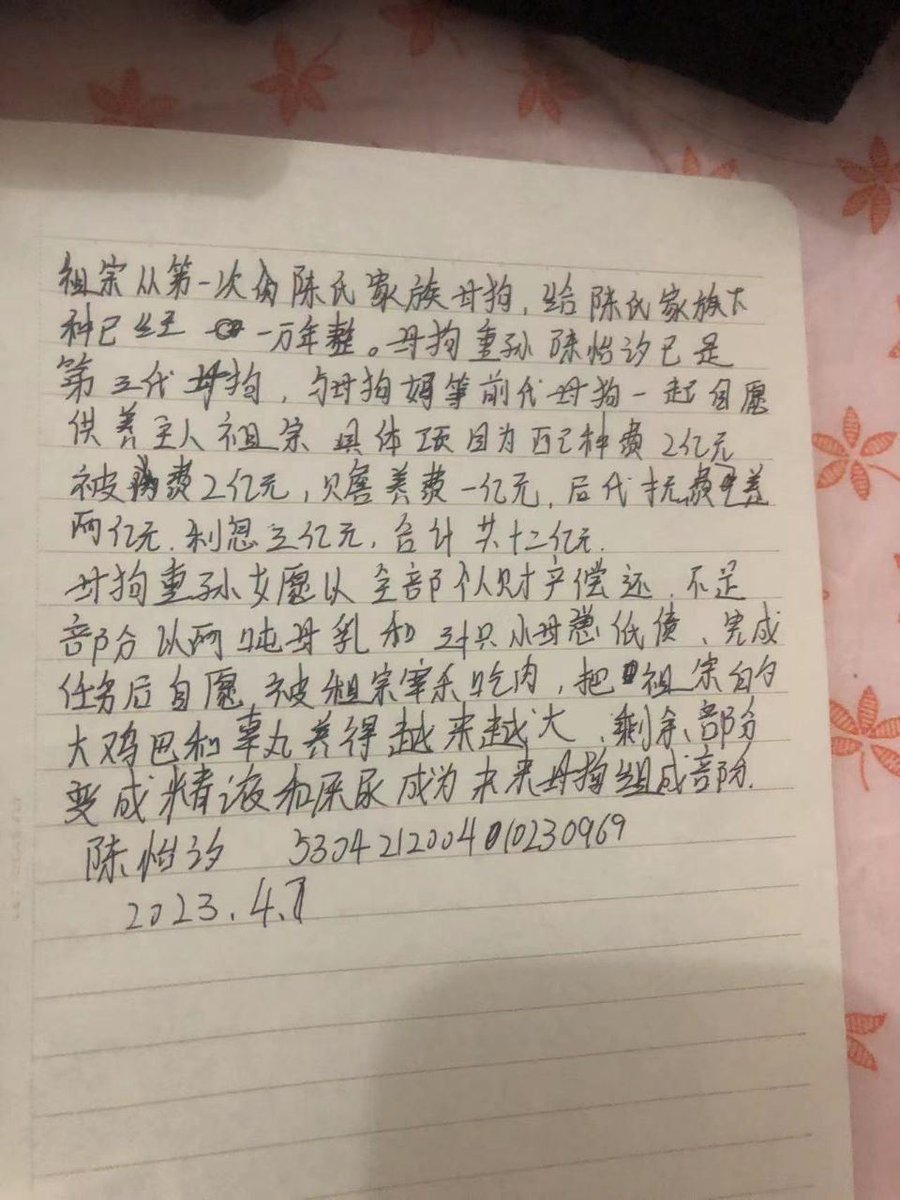 祖宗从第一次肏陈氏家族母狗,给陈氏家族下
种已经一万年整。母狗重孙[姓名略]已是
第三代母狗,与母狗妈等前代母狗一起自愿
供养主人祖宗 具体项目为配种费2亿元
被费2亿元,赡养费一亿元,后代抚费
两亿元.利息三亿元,合计共十二亿元.
母狗重孙女愿以全部个人财产偿还.不足
部分以两吨母乳和只小母低债、完成
任务后自愿被祖宗宰杀吃肉,把祖宗的
大鸡巴和睾丸养得越来越大、剩余部分
变成精液和屎尿成为未来母狗组成部分.
[姓名及身份证号略]
2023.4.